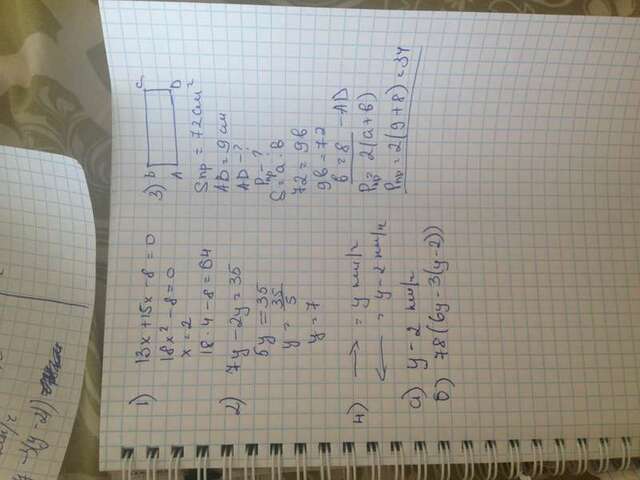 1) 13x+15x-8=0
18x²-8=0
x=2
18·4-8=64
2) 7y-2y=35
5y=35
y=35/5
y=7
3) B C
A D
Sпр=72см²
AB=9см
AD-?
Pпр-?
S=a·b
72=9b
9b=72
b=8 -AD
Pпр=2(a+b)
Pпр=2(9+8)=34
4) → = y км/ч
← = y-2 км/ч
a) y-2 км/ч
b) 78(6y-3(y-2))
-3(y-2))